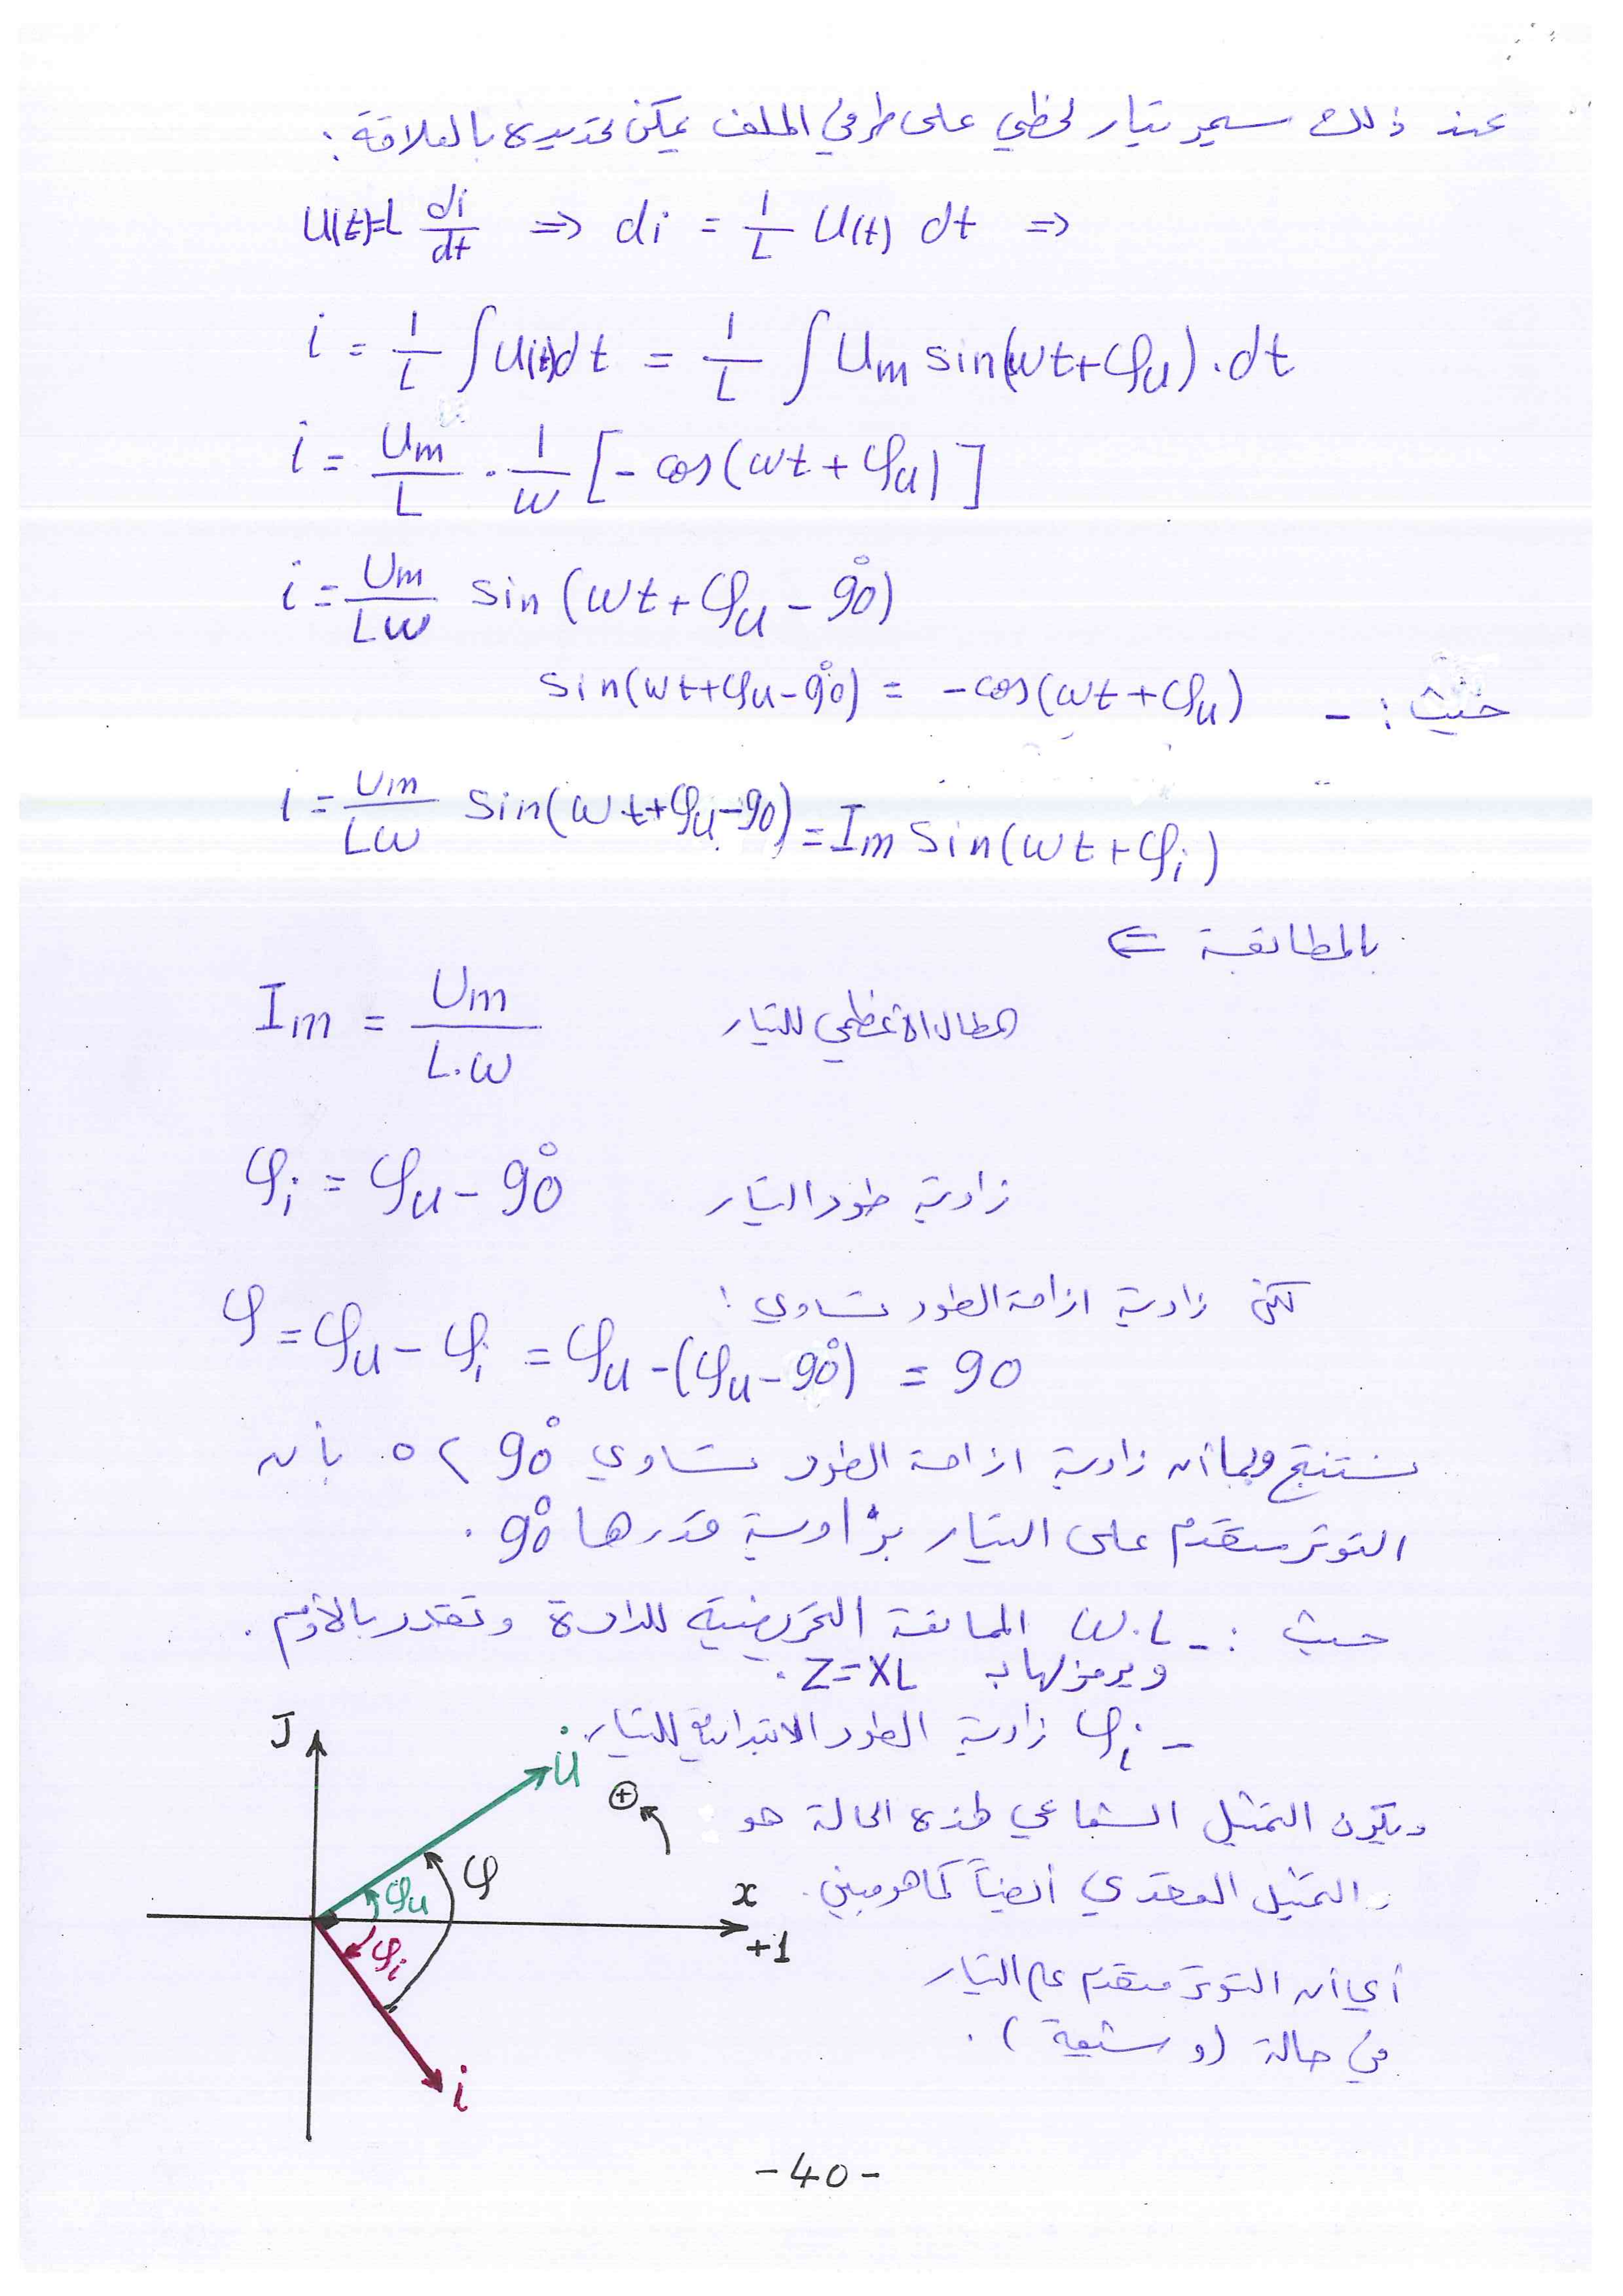 عند ذلك سيمر تيار لحظي على طرفي الملف يمكن تحديده بالعلاقة :
U(t)=L di/dt ⇒ di = 1/L U(t) dt ⇒
i = 1/L ∫U(t)dt = 1/L ∫ Um sin(wt+φu).dt
i = Um/L . 1/w [- cos(wt+φu)]
i = Um/Lw sin (wt+φu - 90°)
حيث : - sin(wt+φu-90°) = -cos(wt+φu)
i = Um/Lw sin(wt+φu-90) = Im sin(wt+φi)
بالمطابقة ⇐
Im = Um/L.w المطال الأعظمي للتيار
φi = φu - 90° زاوية طور التيار
لكن زاوية ازاحة الطور تساوي :
φ = φu - φi = φu -(φu-90°) = 90
نستنتج وبما أن زاوية ازاحة الطور تساوي 90° > 0 بأن
التوتر متقدم على التيار بزاوية قدرها 90° .
حيث : - w.L الممانعة التحريضية للدارة وتقدر بالأوم .
ويرمز لها بـ Z=XL .
- φi زاوية الطور الابتدائي للتيار .
ويكون التمثيل الشعاعي لهذه الحالة هو
والتمثيل العقدي أيضاً كما هو مبين .
أي أن التوتر متقدم على التيار
في حالة (وشيعة) .
J
U
⊕
φ
φu
x
+1
φi
i
-40-